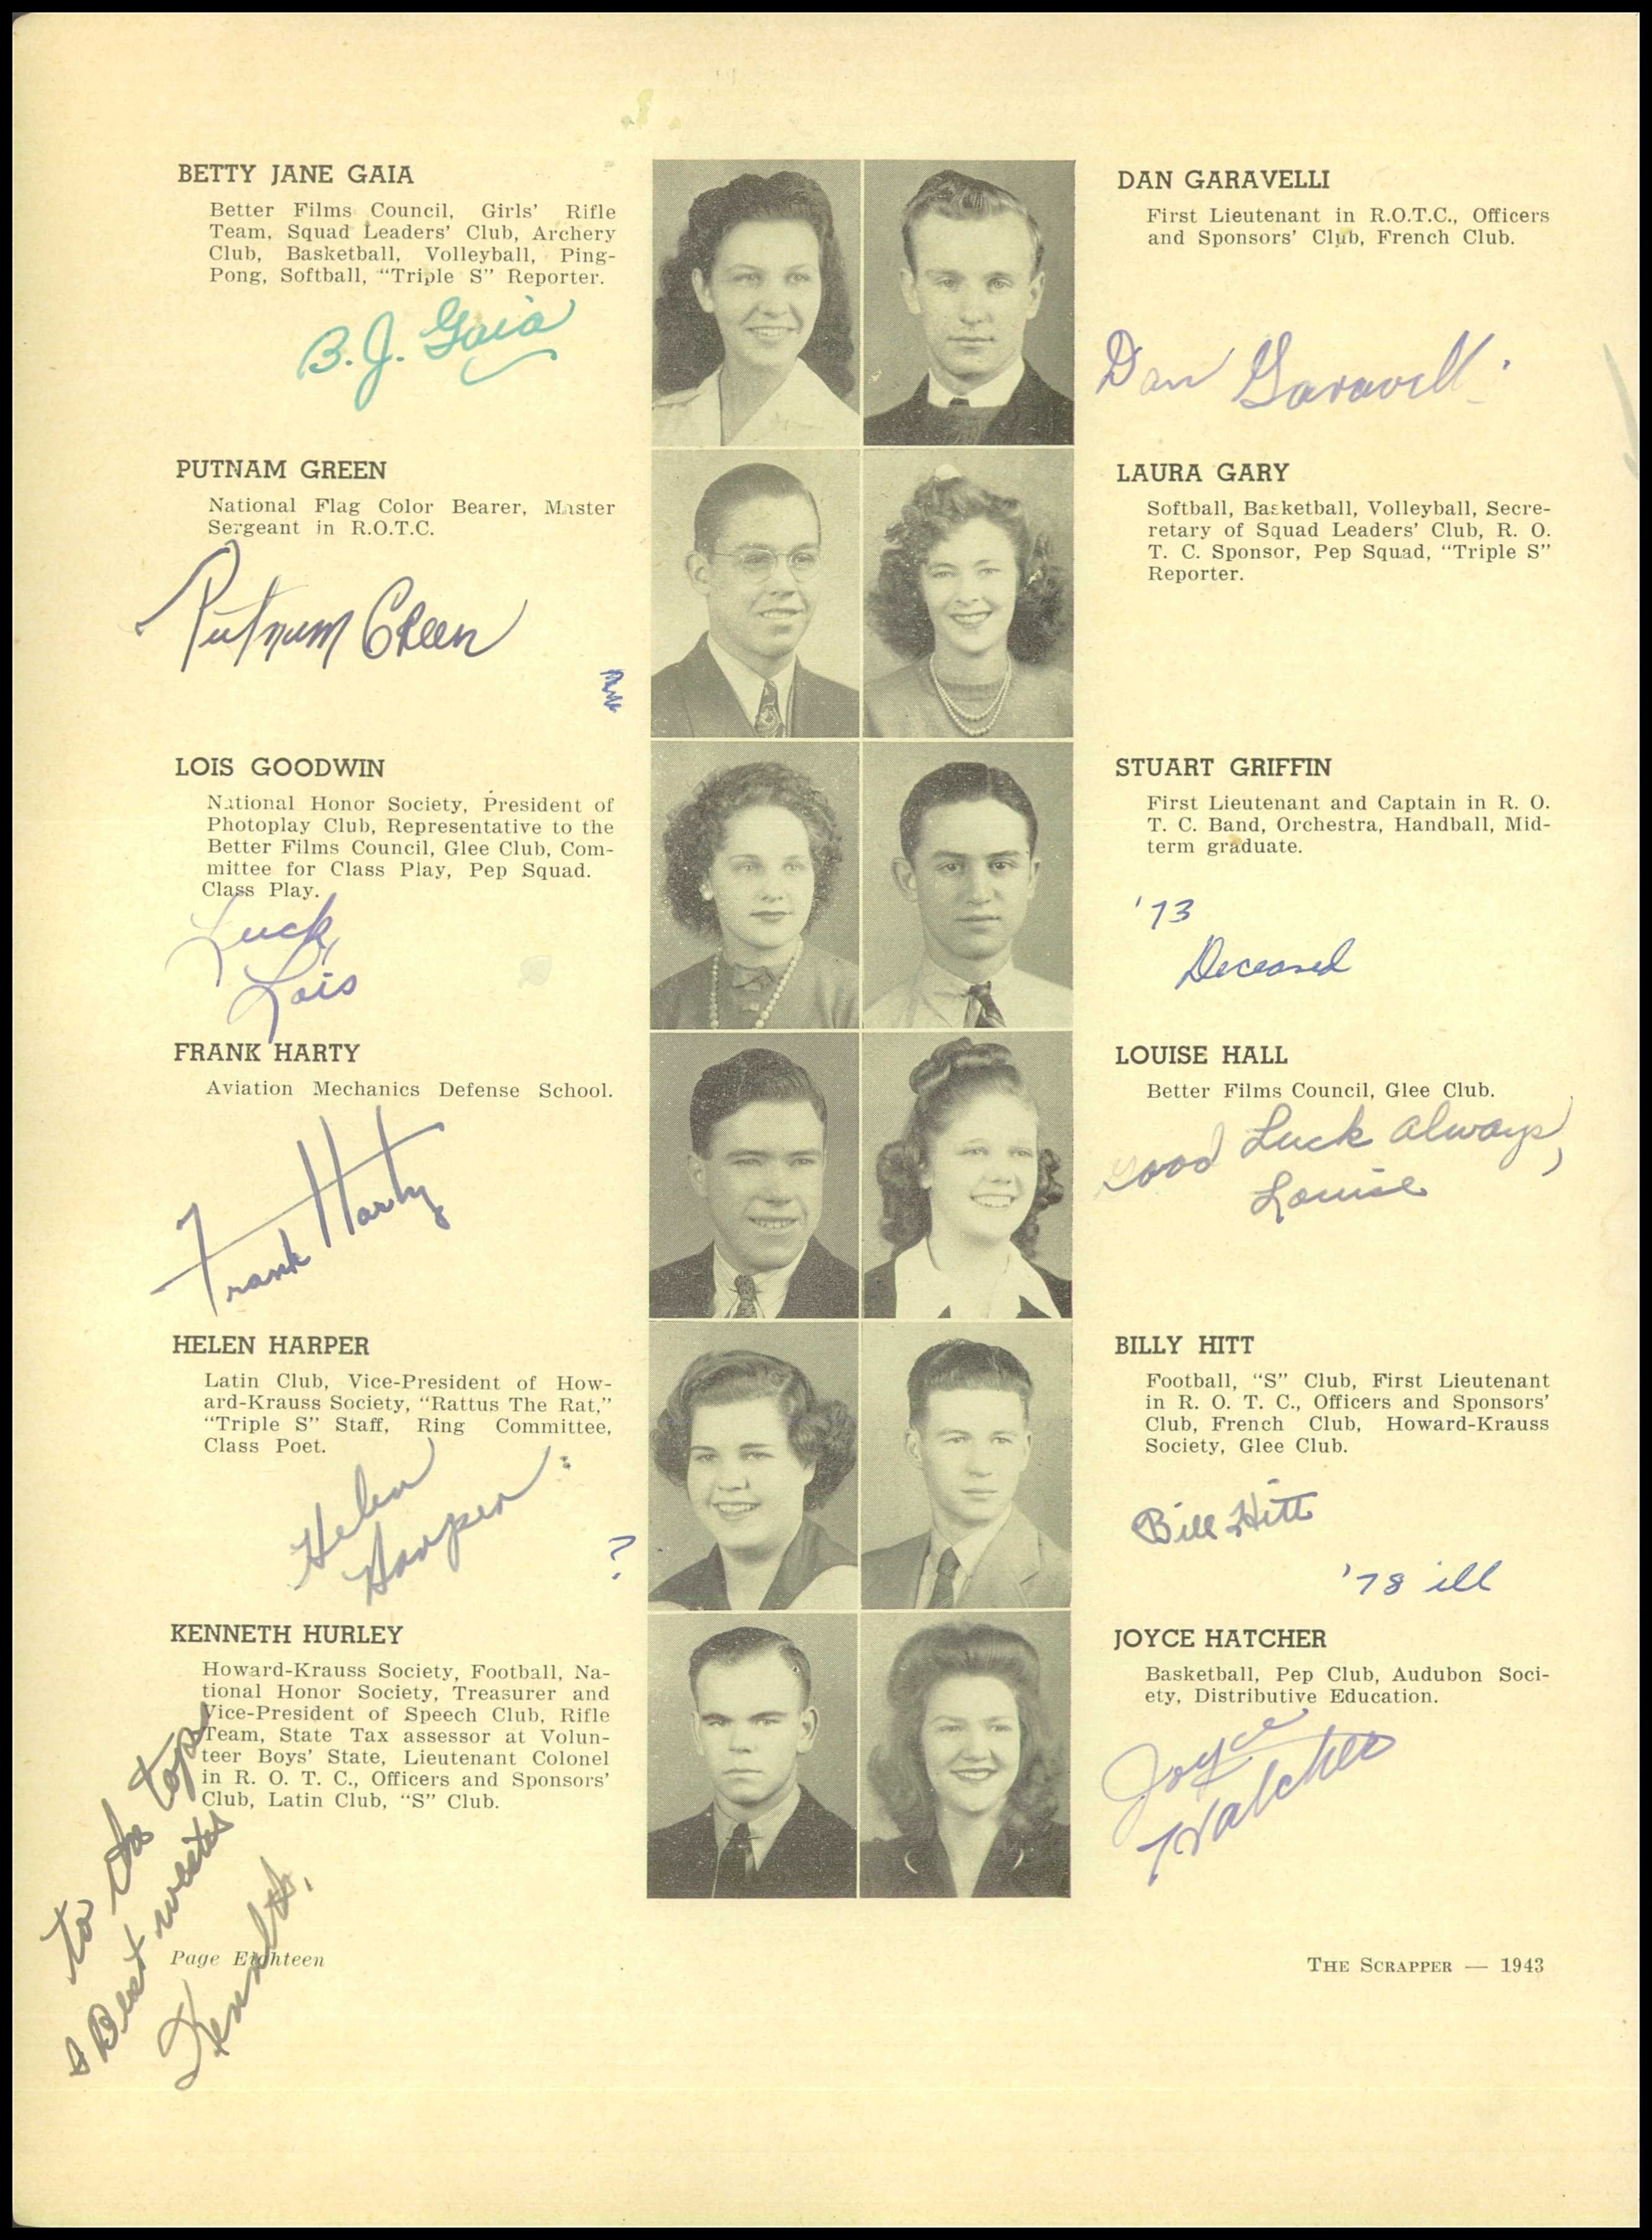 BETTY JANE GAIA
Better Films Council, Girls' Rifle
Team, Squad Leaders' Club, Archery
Club, Basketball, Volleyball, Ping-
Pong, Softball, "Triple S" Reporter.
B.J. Gaia
PUTNAM GREEN
National Flag Color Bearer, Master
Sergeant in R.O.T.C.
Putnam Green
LOIS GOODWIN
National Honor Society, President of
Photoplay Club, Representative to the
Better Films Council, Glee Club, Com-
mittee for Class Play, Pep Squad.
Class Play.
Luck,
Lois
FRANK HARTY
Aviation Mechanics Defense School.
Frank Harty
HELEN HARPER
Latin Club, Vice-President of How-
ard-Krauss Society, "Rattus The Rat,"
"Triple S" Staff, Ring Committee,
Class Poet.
Helen
Harper
?
KENNETH HURLEY
Howard-Krauss Society, Football, Na-
tional Honor Society, Treasurer and
Vice-President of Speech Club, Rifle
Team, State Tax assessor at Volun-
teer Boys' State, Lieutenant Colonel
in R. O. T. C., Officers and Sponsors'
Club, Latin Club, "S" Club.
to the top
& Best wishes
Kenneth.
Page Eighteen
DAN GARAVELLI
First Lieutenant in R.O.T.C., Officers
and Sponsors' Club, French Club.
Dan Garavelli
LAURA GARY
Softball, Basketball, Volleyball, Secre-
retary of Squad Leaders' Club, R. O.
T. C. Sponsor, Pep Squad, "Triple S"
Reporter.
STUART GRIFFIN
First Lieutenant and Captain in R. O.
T. C. Band, Orchestra, Handball, Mid-
term graduate.
'73
Deceased
LOUISE HALL
Better Films Council, Glee Club.
Good Luck always,
Louise
BILLY HITT
Football, "S" Club, First Lieutenant
in R. O. T. C., Officers and Sponsors'
Club, French Club, Howard-Krauss
Society, Glee Club.
Bill Hitt
'78 ill
JOYCE HATCHER
Basketball, Pep Club, Audubon Soci-
ety, Distributive Education.
Joyce
Hatcher
THE SCRAPPER — 1943